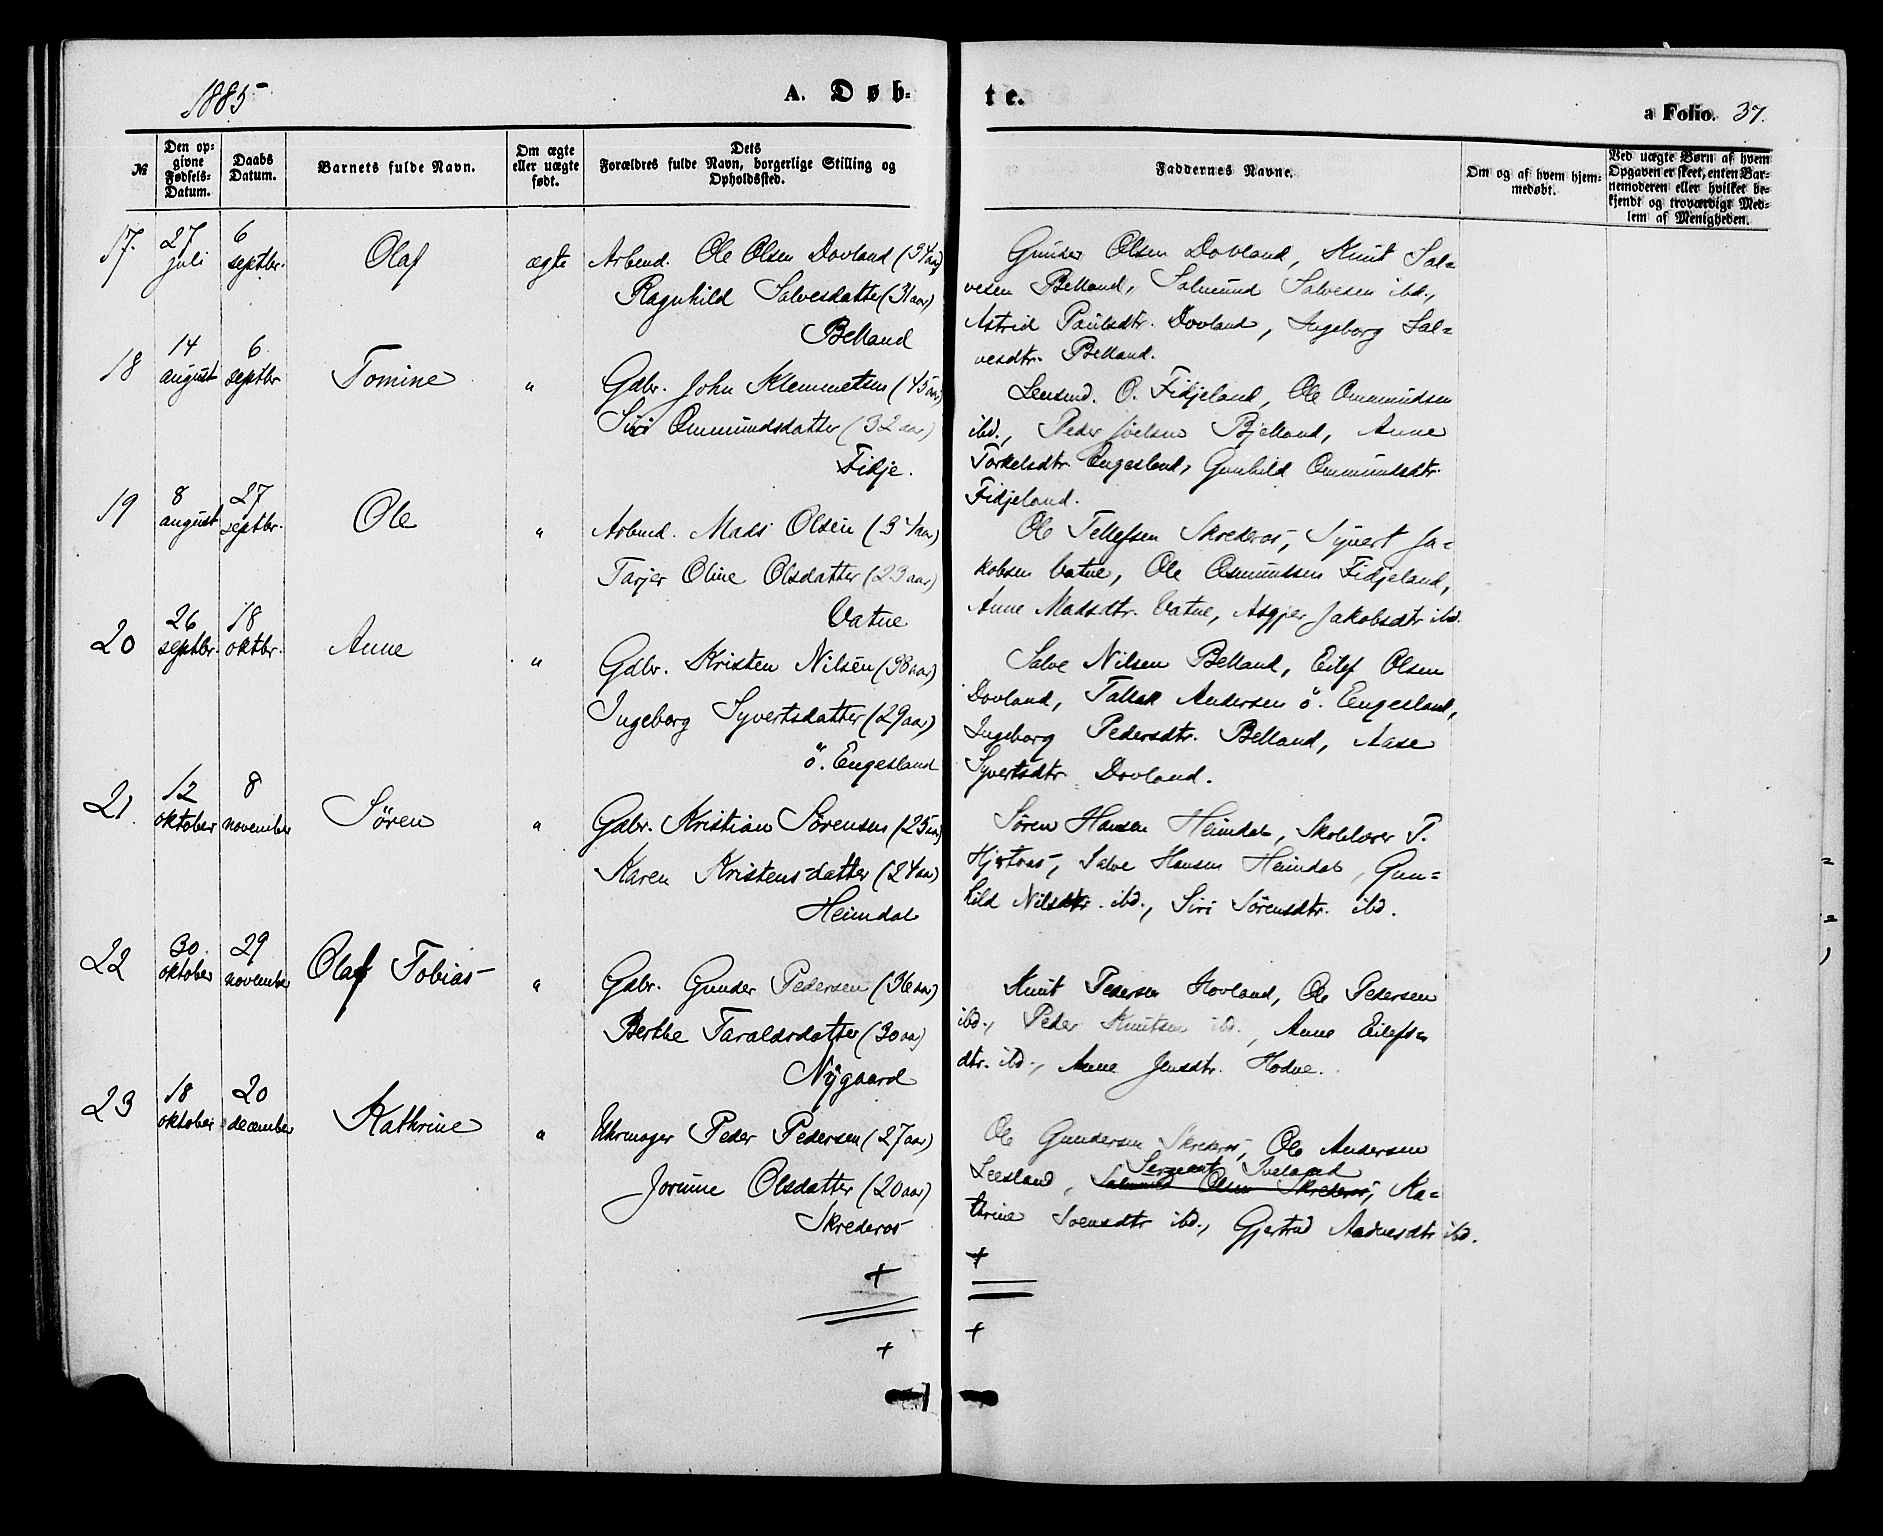 1885
A. Døb-
te.
a Folio. 37.
№
Den op-
givne
Fødsels-
Datum.
Daabs
Datum.
Barnets fulde Navn.
Om ægte
eller uægte
født.
Dets
Forældres fulde Navn, borgerlige Stilling og
Opholdssted.
Faddernes Navne.
Om og af hvem hjem-
medøbt.
Ved uægte Børn af hvem
Opgaven er skeet, enten Bar-
nemoderen eller hvilket be-
kjendt og troværdigt Med-
lem af Menigheden.
17. 27 juli 6 septbr. Olaf ægte Arbmd. Ole Olsen Dovland (34 aar)
Ragnhild Salvesdatter (31 aar)
Belland
Gunder Olsen Dovland, Knut Sal=
vesen Belland, Salmund Salvesen ibd.,
Astrid Paulsdtr. Dovland, Ingeborg Sal=
vesdtr. Belland.
18 14 august 6 septbr Tomine " Gdbr. John Klemmetsen (45 aar)
Siri Ommundsdatter (32 aar)
Fidje.
Lensmd. O. Fidjeland, Ole Ommundsen
ibd., Peder Joelsen Bjelland, Anne
Torkelsdtr. Engesland, Gunhild Ommundsdtr.
Fidjeland.
19 8 august 27 septbr. Ole " Arbmd. Mads Olsen (34 aar)
Tarjer Oline Olsdatter (23 aar)
Vatne
Ole Tellefsen Skrederos, Syvert Ja=
kobsen Vatne, Ole Osmundsen Fidjeland,
Anne Madsdtr. Vatne, Asgjer Jakobsdtr ibd.
20 26 septbr. 18 oktbr. Anne " Gdbr. Kristen Nilsen (38 aar)
Ingeborg Syvertsdatter (29 aar)
ö. Engesland
Salve Nilsen Belland, Eilef Olsen
Dovland, Tallak Andersen ö. Engesland,
Ingeborg Pedersdtr. Belland, Aase
Syvertsdtr. Dovland.
21. 12 oktober 8 november Sören " Gdbr. Kristian Sörensen (25 aar)
Karen Kristensdatter (24 aar)
Heimdal
Sören Hansen Heimdal, Skolelærer P.
Hjortaas, Salve Hansen Heimdal, Gun=
hild Nilsdtr. ibd., Siri Sörensdtr. ibd.
22 30 oktober 29 november Olaf Tobias " Gdbr. Gunder Pedersen (36 aar)
Berthe Taraldsdatter (30 aar)
Nygaard
Knut Pedersen Hovland, Ole Pedersen
ibd., Peder Knutsen ibd., Anne Eilefs=
dtr. ibd., Anne Jensdtr. Hodne.
23 18 oktober 20 december Kathrine " Uhrmager Peder Pedersen (27 aar)
Jorine Olsdatter (20 aar)
Skrederos
Ole Gundersen Skrederos, Ole Andersen
Sergeant Iveland
Leesland, Salmund Olsen Skrederos, Ka=
thrine Svensdtr ibd., Gjertrud Aadnesdtr ibd.